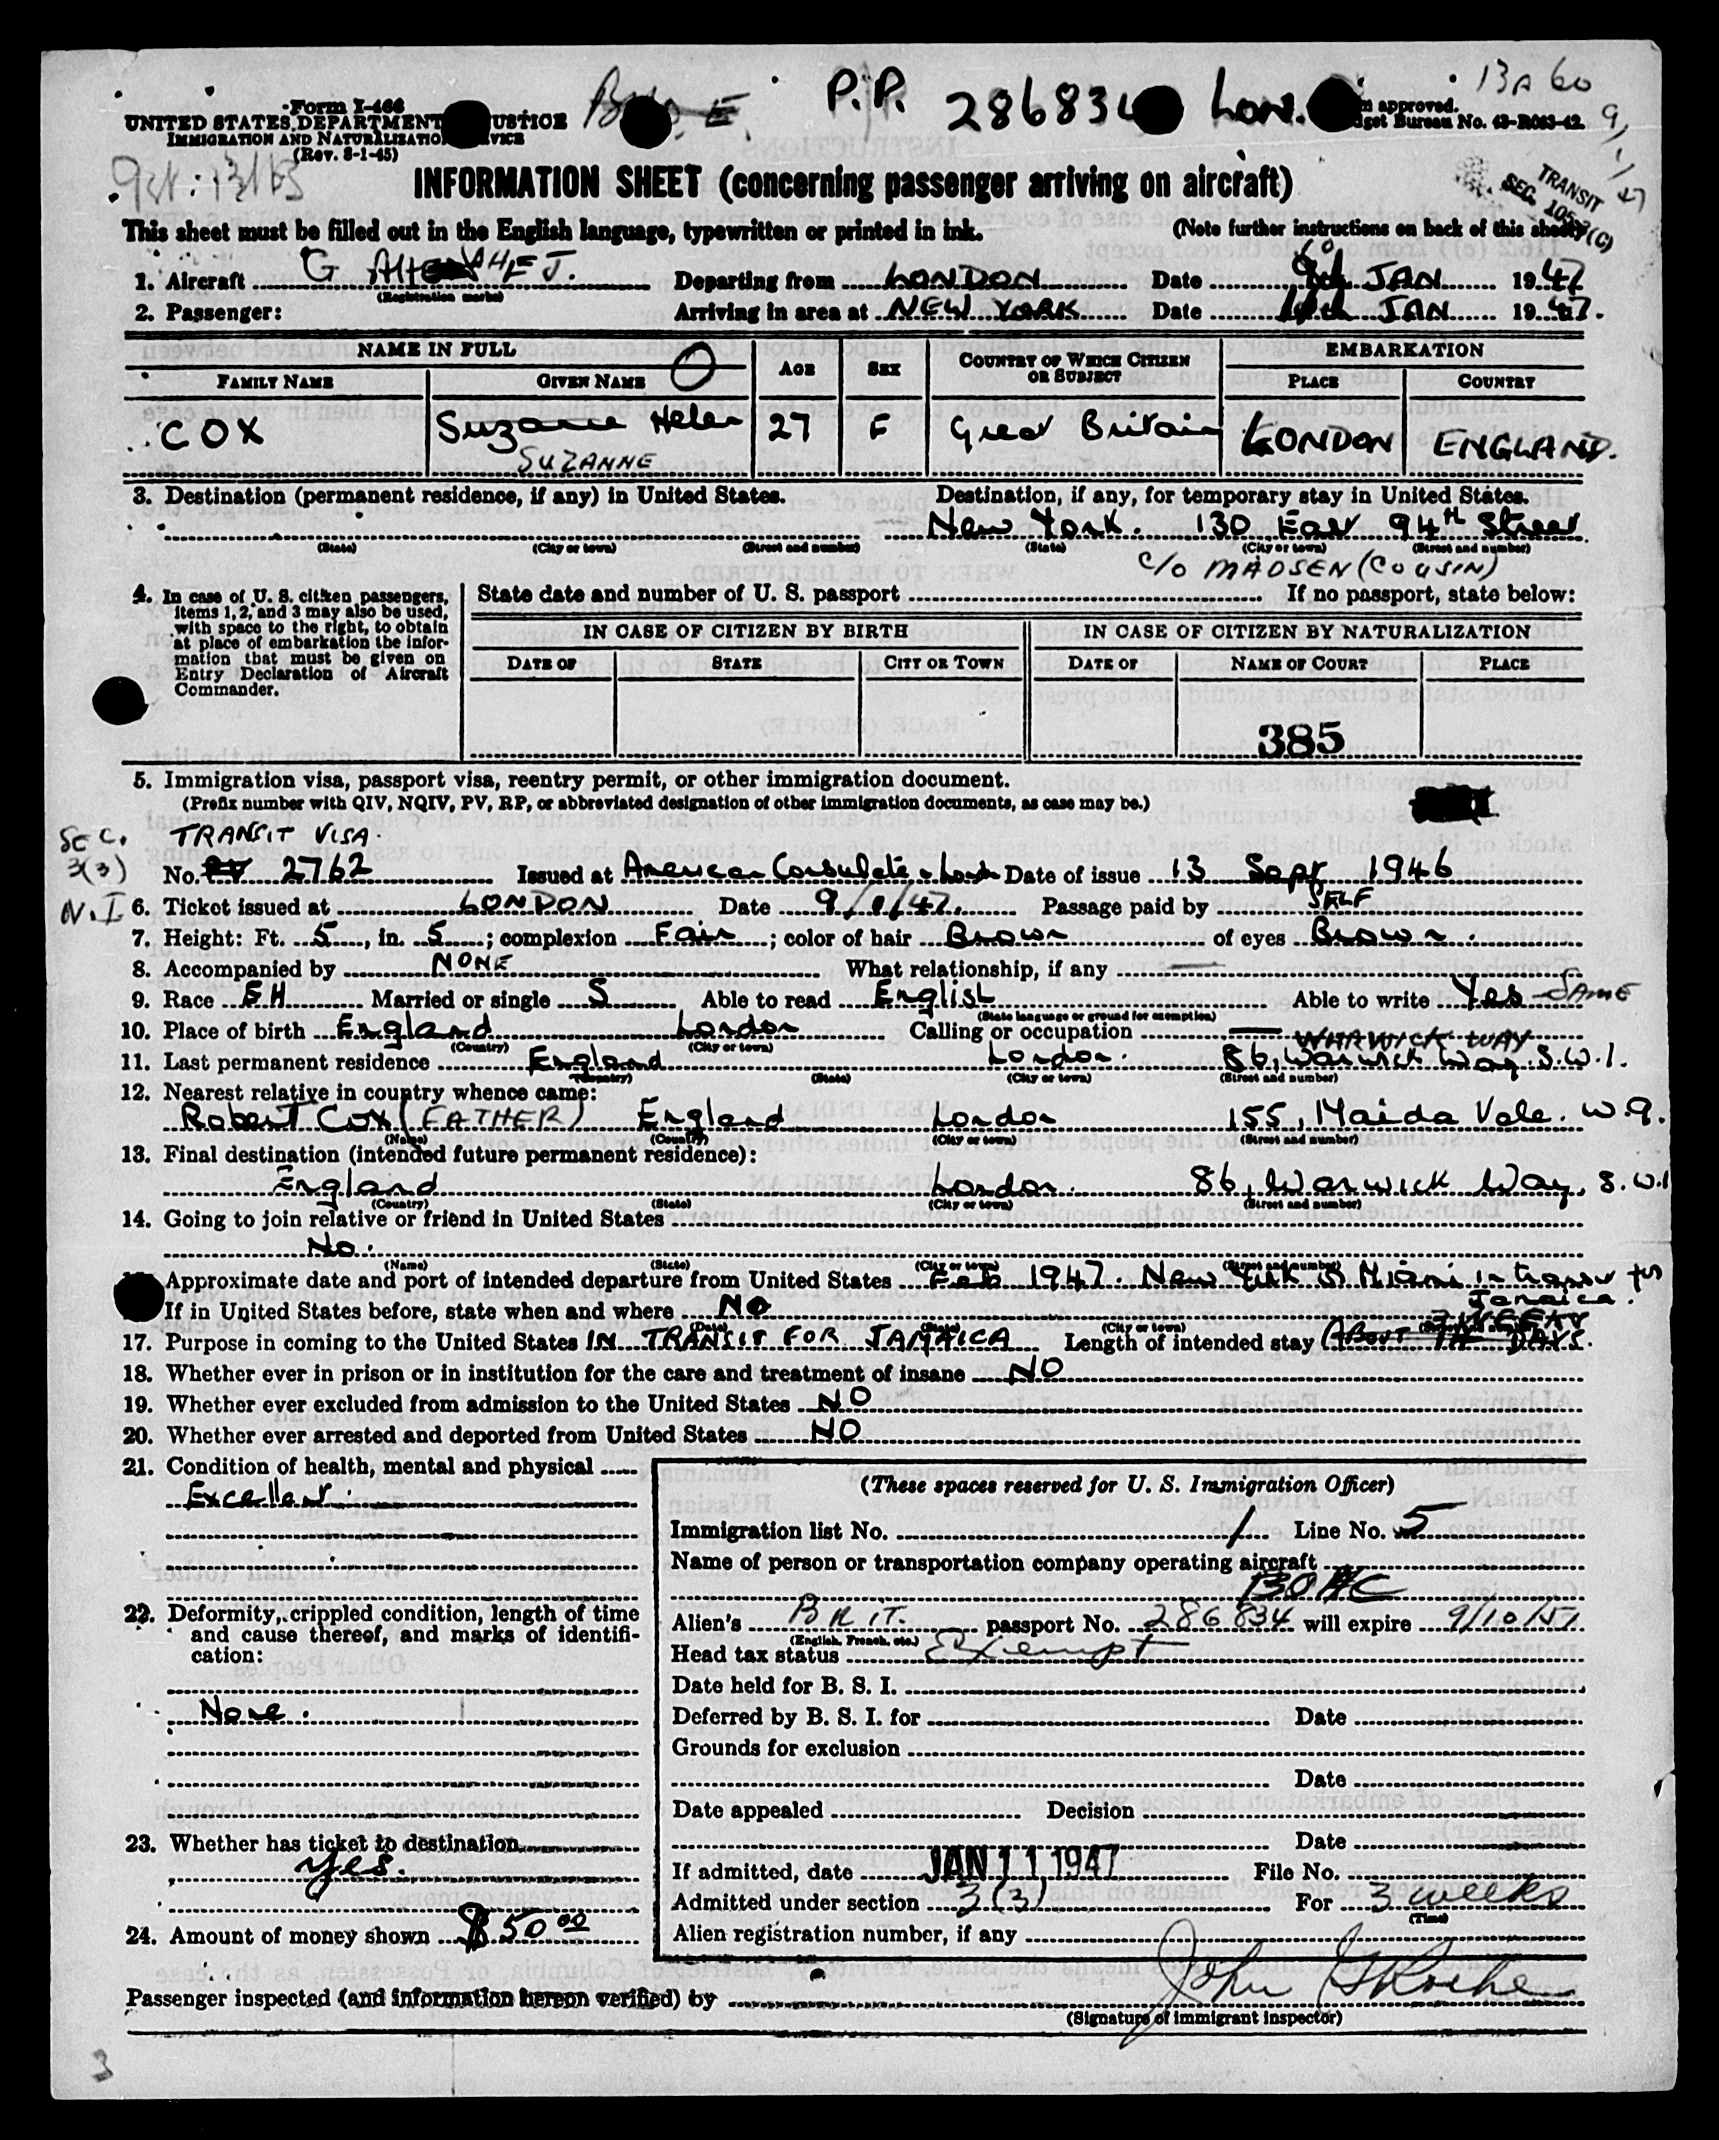 13A 60
P.P. 286834 Lon.
Form I-466
UNITED STATES DEPARTMENT JUSTICE
IMMIGRATION AND NATURALIZATION SERVICE
(Rev. 8-1-45)
approved.
Budget Bureau No. 43-R063-42.
9/1/47
TRANSIT
SEC. 105-3(C)
INFORMATION SHEET (concerning passenger arriving on aircraft)
This sheet must be filled out in the English language, typewritten or printed in ink. (Note further instructions on back of this sheet)
1. Aircraft G AHEJ. Departing from LONDON Date JAN 1947
(Registration marks)
2. Passenger: Arriving in area at NEW YORK Date JAN 1947.
NAME IN FULL AGE SEX COUNTRY OF WHICH CITIZEN OR SUBJECT EMBARKATION
FAMILY NAME GIVEN NAME PLACE COUNTRY
COX Suzanne Helen 27 F Great Britain LONDON ENGLAND.
SUZANNE
3. Destination (permanent residence, if any) in United States. Destination, if any, for temporary stay in United States.
New York. 130 East 94th Street
(State) (City or town) (Street and number) (State) (City or town) (Street and number)
c/o MADSEN (COUSIN)
4. In case of U. S. citizen passengers, items 1, 2, and 3 may also be used, with space to the right, to obtain at place of embarkation the information that must be given on Entry Declaration of Aircraft Commander.
State date and number of U. S. passport If no passport, state below:
IN CASE OF CITIZEN BY BIRTH IN CASE OF CITIZEN BY NATURALIZATION
DATE OF STATE CITY OR TOWN DATE OF NAME OF COURT PLACE
385
5. Immigration visa, passport visa, reentry permit, or other immigration document.
(Prefix number with QIV, NQIV, PV, RP, or abbreviated designation of other immigration documents, as case may be.)
SEC. 3(3) N.I
TRANSIT VISA.
No. PV 2762 Issued at American Consulate London Date of issue 13 Sept 1946
6. Ticket issued at LONDON Date 9/1/47. Passage paid by SELF
7. Height: Ft. 5, in. 5; complexion Fair; color of hair Brown of eyes Brown.
8. Accompanied by NONE What relationship, if any —
9. Race EH Married or single S Able to read English Able to write Yes - SAME
(State language or ground for exemption)
10. Place of birth England London Calling or occupation —
(Country) (City or town)
WARWICK WAY
11. Last permanent residence England London. 86, Warwick Way S.W.1.
(Country) (State) (City or town) (Street and number)
12. Nearest relative in country whence came:
Robert Cox (FATHER) England London 155, Maida Vale. W.9.
(Name) (Country) (City or town) (Street and number)
13. Final destination (intended future permanent residence):
England London. 86, Warwick Way, S.W.1
(Country) (State) (City or town) (Street and number)
14. Going to join relative or friend in United States
No.
(Name) (State) (City or town) (Street and number)
Approximate date and port of intended departure from United States Feb 1947. New York Miami in transit for Jamaica.
If in United States before, state when and where No
(Date) (State) (City or town) (Street and number)
3 WEEKS
17. Purpose in coming to the United States IN TRANSIT FOR JAMAICA Length of intended stay (ABOUT 14 DAYS.
18. Whether ever in prison or in institution for the care and treatment of insane NO
19. Whether ever excluded from admission to the United States NO
20. Whether ever arrested and deported from United States NO
21. Condition of health, mental and physical
Excellent.
22. Deformity, crippled condition, length of time and cause thereof, and marks of identification:
None.
23. Whether has ticket to destination
Yes.
24. Amount of money shown $50.00
(These spaces reserved for U. S. Immigration Officer)
Immigration list No. 1 Line No. 5
Name of person or transportation company operating aircraft
BOAC
Alien's BRIT. passport No. 286834 will expire 9/10/51
(English, French, etc.)
Head tax status Exempt
Date held for B. S. I.
Deferred by B. S. I. for Date
Grounds for exclusion
Date
Date appealed Decision
Date
If admitted, date JAN 11 1947 File No.
Admitted under section 3(3) For 3 weeks
(Time)
Alien registration number, if any
Passenger inspected (and information hereon verified) by John
(Signature of immigrant inspector)
3